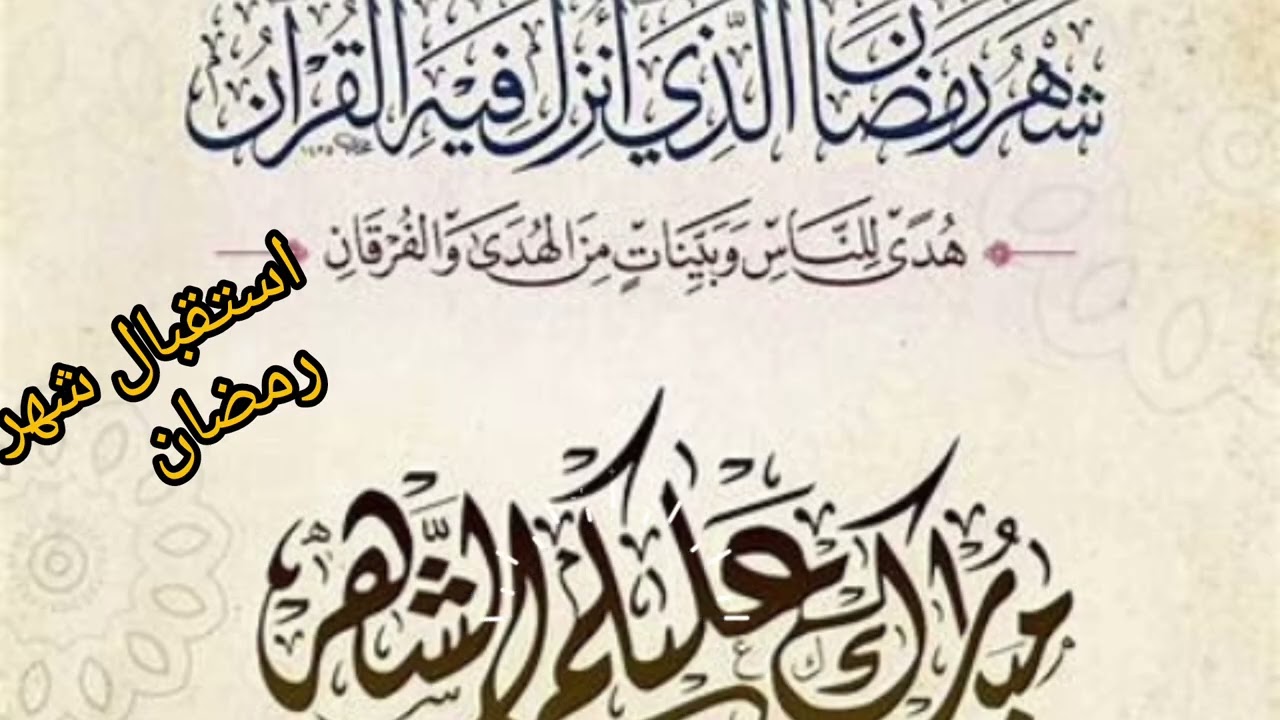 شهر رمضان الذي أنزل فيه القرآن
هُدًى لِلنَّاسِ وَبَيِّنَاتٍ مِنَ الْهُدَى وَالْفُرْقَانِ
استقبال شهر
رمضان
مبارك عليكم الشهر